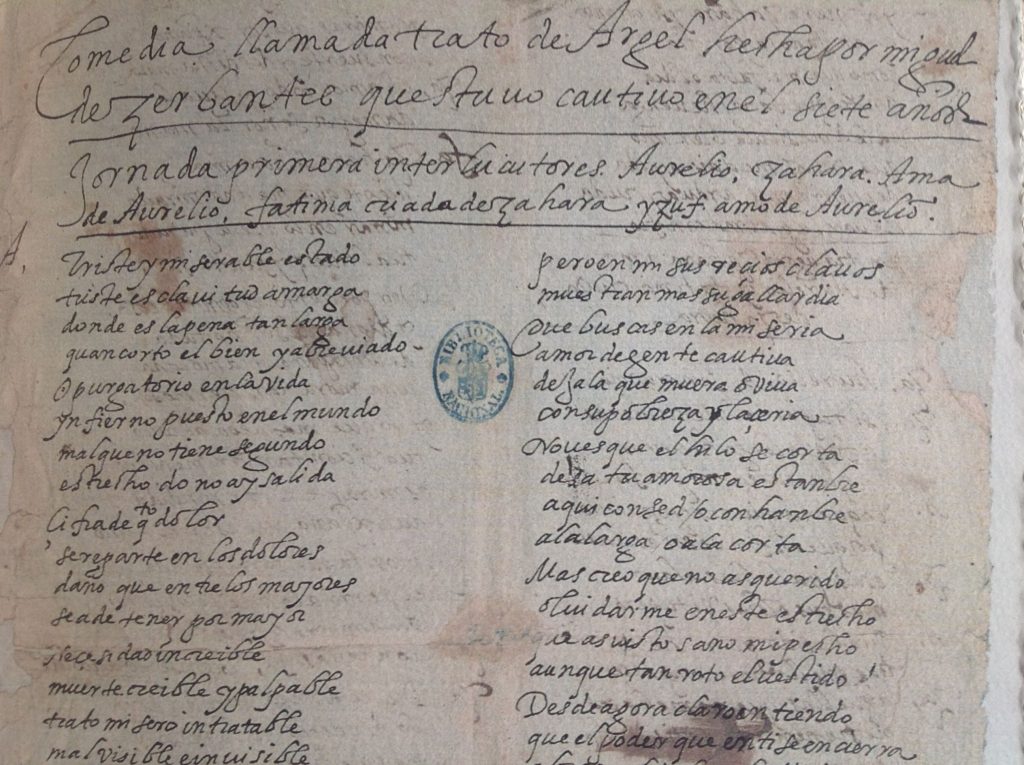 Comedia llamada trato de Argel hecha por miguel
de zerbantes questuuo cautiuo en el siete años
Jornada primera interlucutores. Aurelio, zahara. Ama
de Aurelio, fatima criada de zahara yzuf amo de Aurelio.
A,
Triste y miserable estado
triste esclauitud amarga
donde es la pena tan larga
quan corto el bien y abreuiado
O purgatorio en la vida
ynfierno puesto en el mundo
mal que no tiene segundo
estrecho do no ay salida
Cifra de qto dolor
se reparte en los dolores
daño que entre los mayores
se a de tener por mayor
Neçesidad increible
muerte creible y palpable
trato misero intratable
mal visible e inuisible
BIBLIOTECA NACIONAL
pero en mi sus recios clauos
muestran mas su gallardia
Que buscas en la miseria
amor de gente cautiua
dexala que muera o viua
con su pobreza y laçeria
No ves que el hilo se corta
desta tu amorosa estanbre
aqui con sed o con hanbre
a la larga o a la corta
Mas creo que no as querido
oluidarme en este estrecho
que as uisto sano mi pecho
aunque tan roto el uestido
Desde agora claro entiendo
que el poder que en ti se encierra